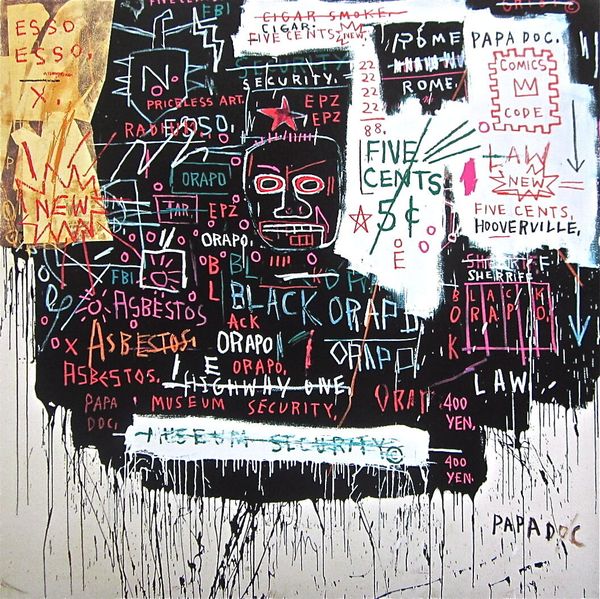 ESSO
ESSO.
X.
NEW
FBI
N.
PRICELESS ART.
CIGAR SMOKE.
CIGAR
FIVE CENTS,
NEW.
SECURITY
SECURITY.
EPZ
EPZ
22
22
22
22
88.
ROME
ROME
PAPA DOC.
COMICS
CODE
LAW
NEW
FIVE CENTS.
HOOVERVILLE.
FIVE
CENTS
5¢
ORAPO
TAR
EPZ
ORAPO.
FBI
ASBESTOS
ASBESTOS.
ASBESTOS.
BLACK ORAPO
ACK
ORAPO
ORAPO.
ORAPO.
HIGHWAY ONE
SHERRIFF
BLACK
ORAP
LAW
400
YEN.
400
YEN.
PAPA
DOC.
MUSEUM SECURITY,
MUSEUM SECURITY ©
PAPA DOC